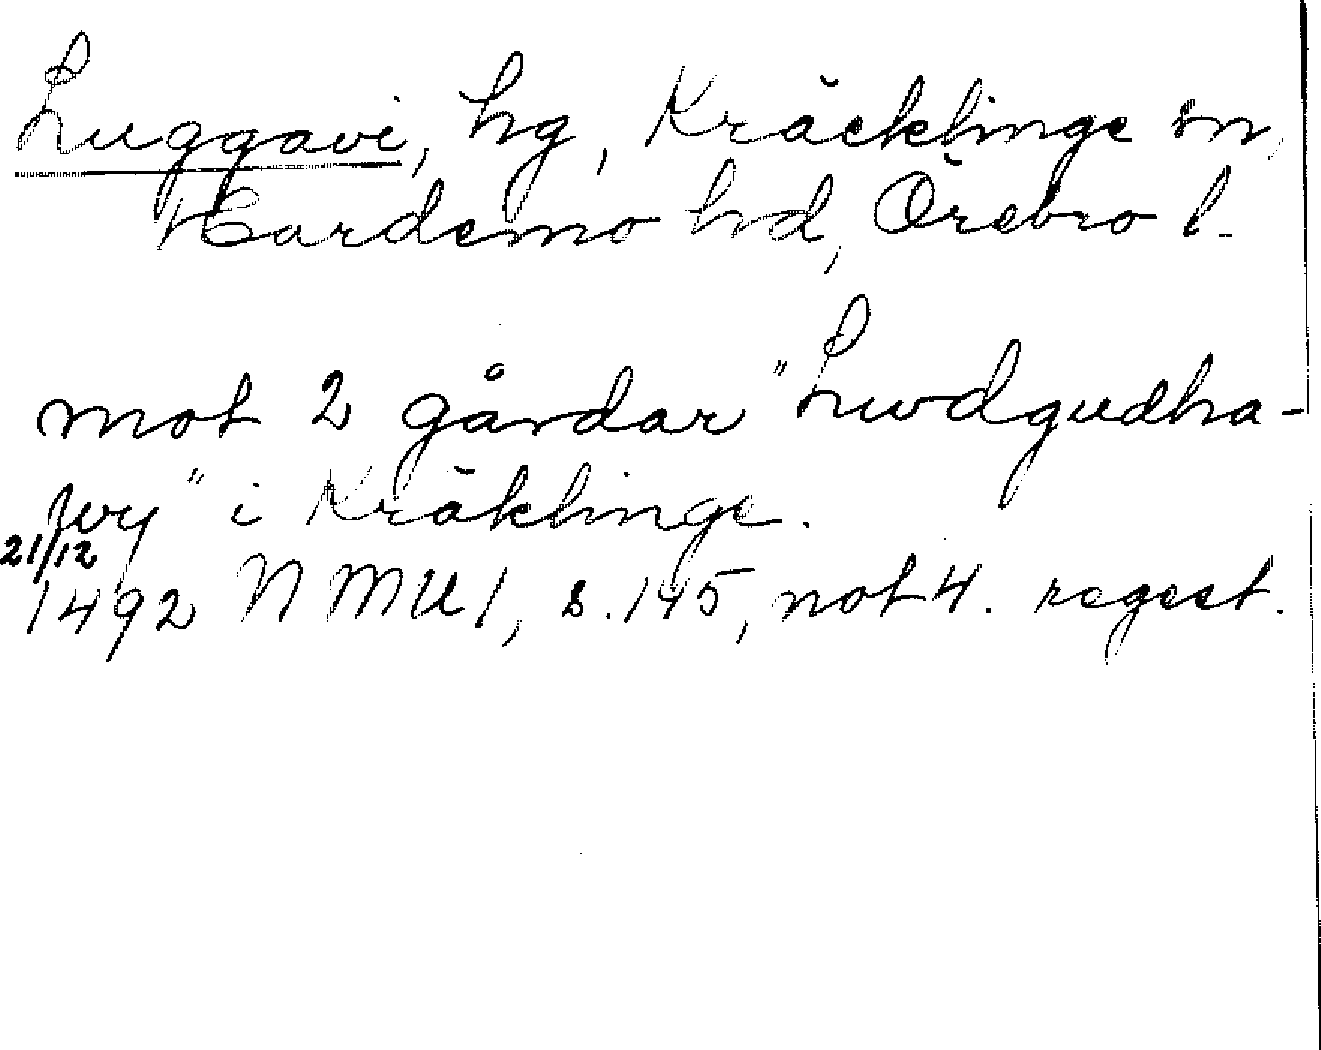 Luggavi, hg, Kräcklinge sn,
Hardemo hd, Örebro l.
mot 2 gårdar "Lwdgudha-
wy" i Kräklinge.
21/12
1492 NMU 1, s. 145, not 4. regest.